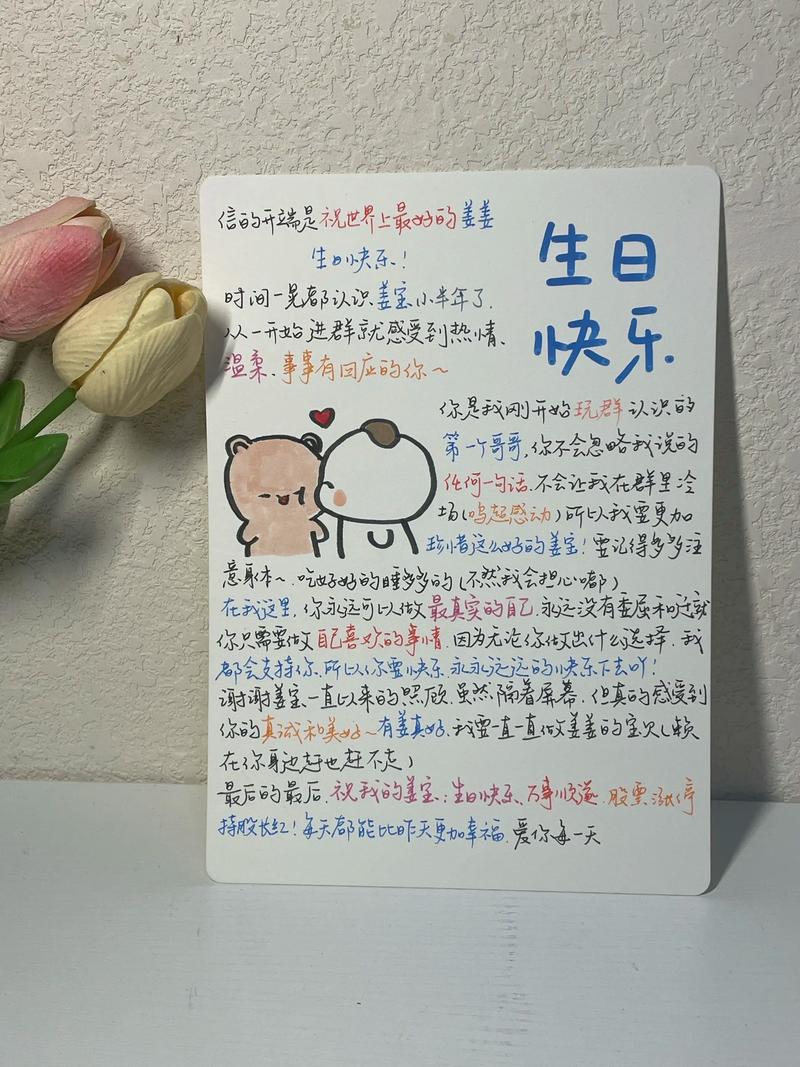 信的开端是祝世界上最好的姜姜
生日快乐！
生日
快乐
时间一晃都认识姜宝小半年了.
从一开始进群就感受到热情、
温柔、事事有回应的你～
你是我刚开始玩群认识的
第一个哥哥,你不会忽略我说的
任何一句话.不会让我在群里冷
场(呜起感动)所以我要更加
珍惜这么好的姜宝！要记得多多注
意身体～.吃好好的睡多多的(不然我会担心嘟)
在我这里,你永远可以做最真实的自己.永远没有委屈和迁就
你只需要做自己喜欢的事情.因为无论你做出什么选择.我
都会支持你.所以你要快乐.永永远远的快乐下去吖！
谢谢姜宝一直以来的照顾.虽然隔着屏幕.但真的感受到
你的真诚和美好～有姜真好.我要一直一直做姜姜的宝贝(赖
在你身边赶也赶不走)
最后的最后.祝我的姜宝：生日快乐、万事顺遂.股票涨停
持股长红！每天都能比昨天更加幸福.爱你每一天